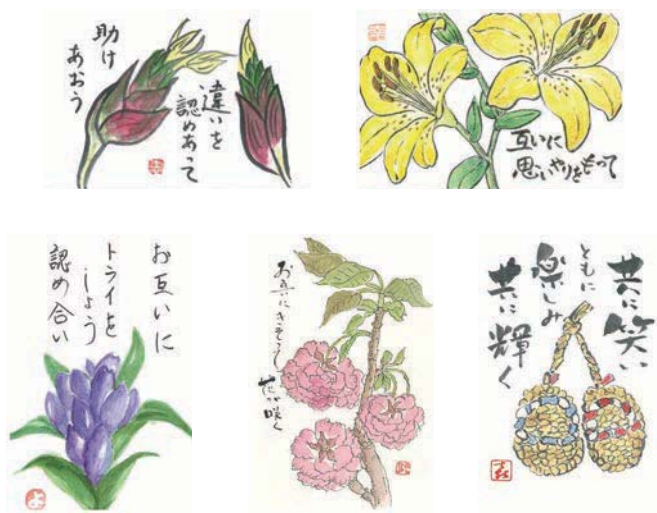 違いを
認めあって
助け
あおう
互いに
思いやりをもって
お互いに
トライを
しよう
認め合い
お互いに
花が咲く
共に笑い
ともに
楽しみ
共に輝く
よ